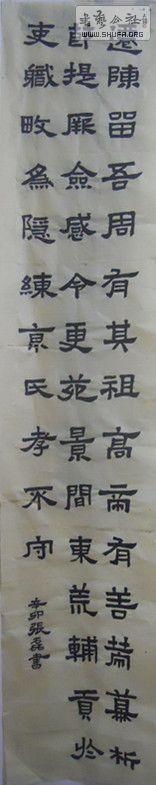 書藝公社
WWW.SHUFA.ORG
遠陳留吾周有其祖高帝有善莽墓析
郎提厥命感今更苑景間東荒輔貢於
吏職畋為隱練京氏孝不守
辛卯張磊書